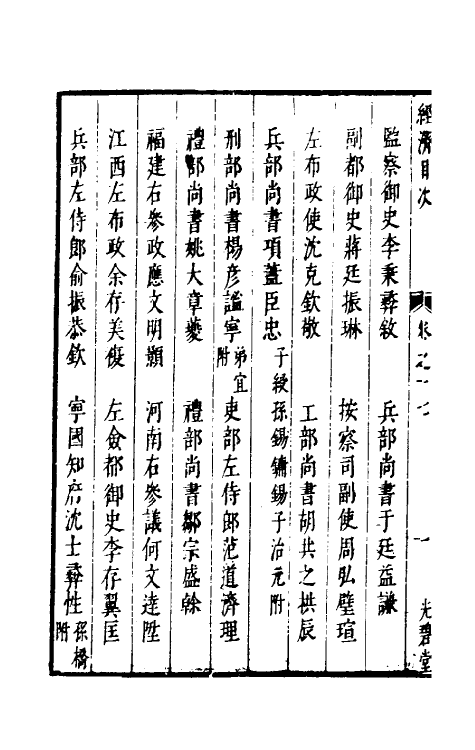 經濟目次 卷之十七 一 光碧堂
監察御史李秉彝敘 兵部尚書于廷益謙
副都御史蔣廷振琳 按察司副使周弘璧瑄
左布政使沈克欽敬 工部尚書胡共之拱辰
兵部尚書項藎臣忠 子綬孫錫鏞錫子治元附
刑部尚書楊彦謐寧 弟宜附 吏部左侍郎范道濟理
禮部尚書姚大章夔 禮部尚書鄒宗盛榦
福建右參政應文明顥 河南右參議何文達陞
江西左布政余存美復 左僉都御史李存翼匡
兵部左侍郎俞振恭欽 寧國知府沈士彝性 孫橋附